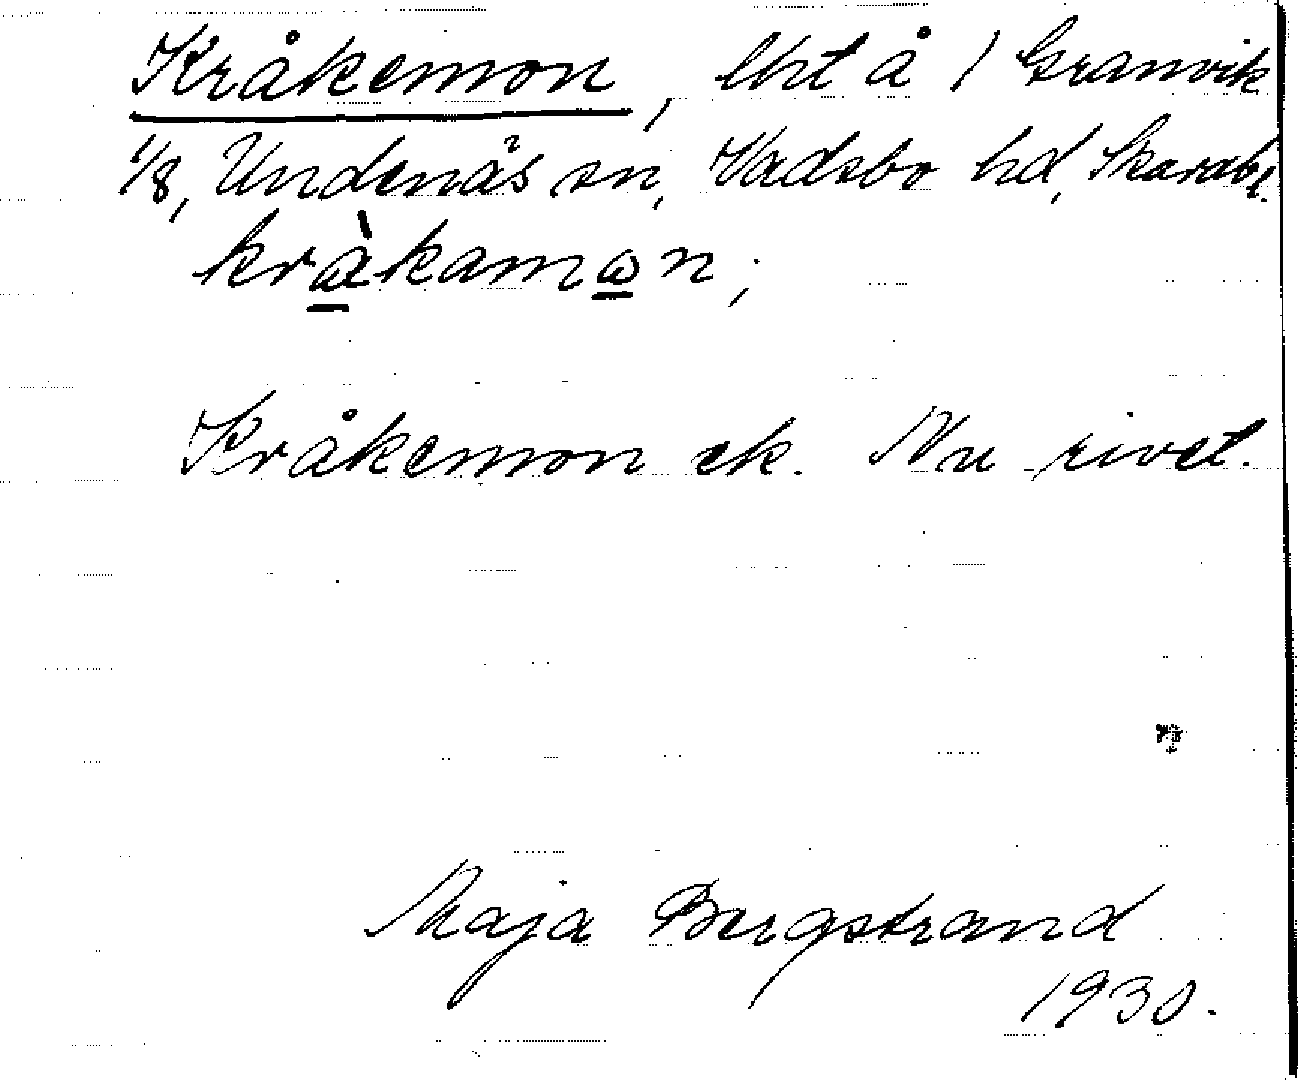 Kråkemon, lht å 1 Granvik
1/8, Undenäs sn, Vadsbo hd, Skarabl.
kràkamωn;
Kråkemon ek. Nu rivet.
Maja Bergstrand
1930.